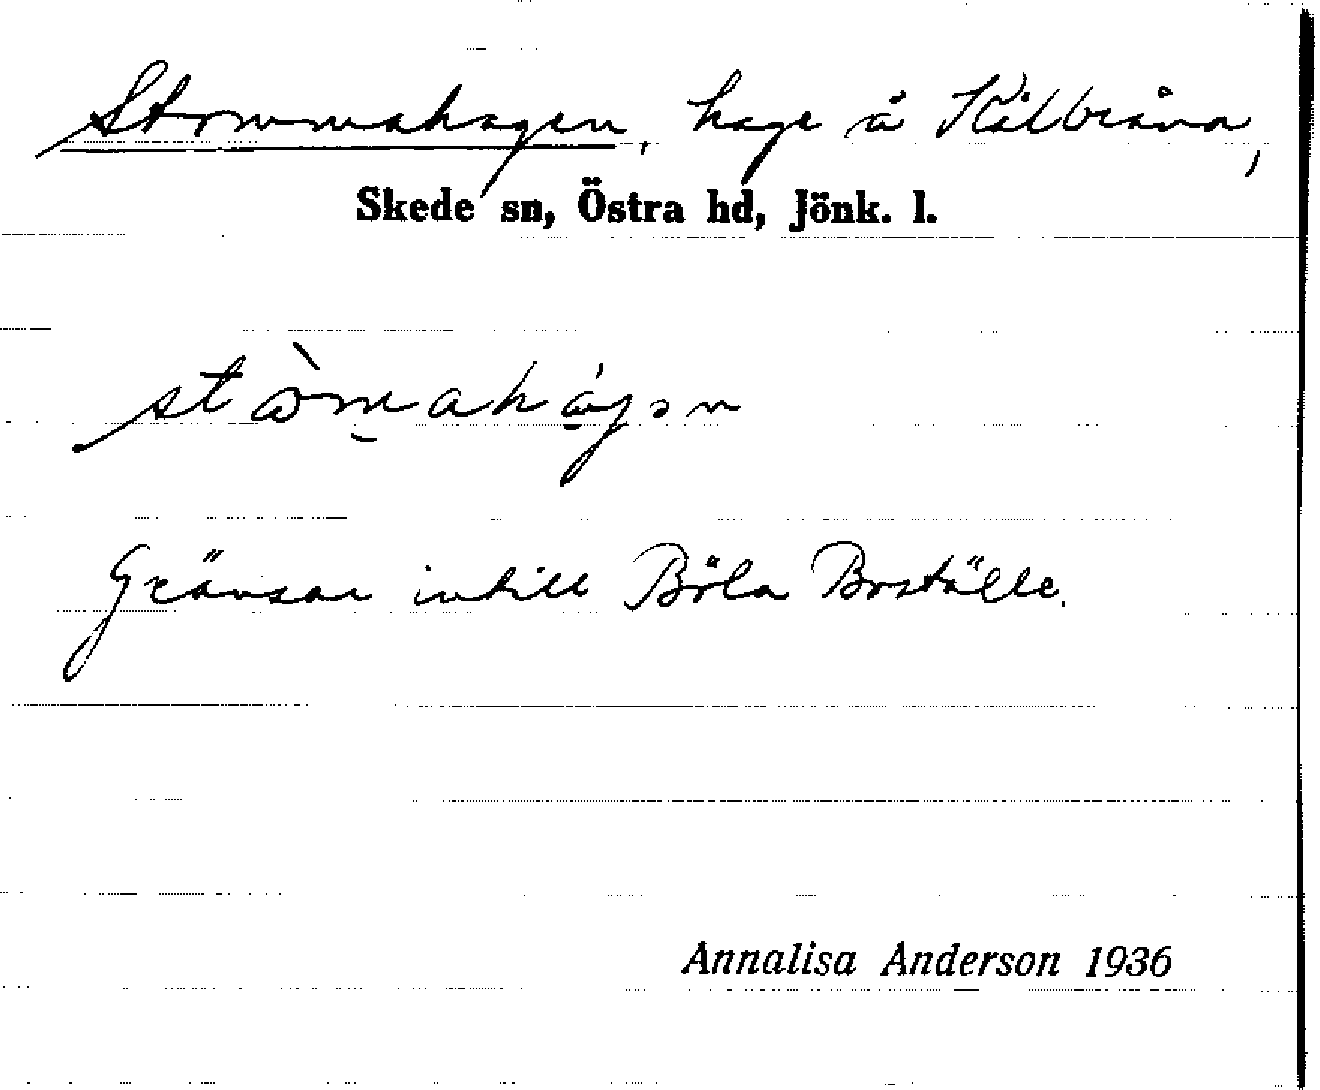 Stommahagen, hage å Kålbråna,
Skede sn, Östra hd, Jönk. l.
Gränsar intill Böla Boställe.
Annalisa Anderson 1936